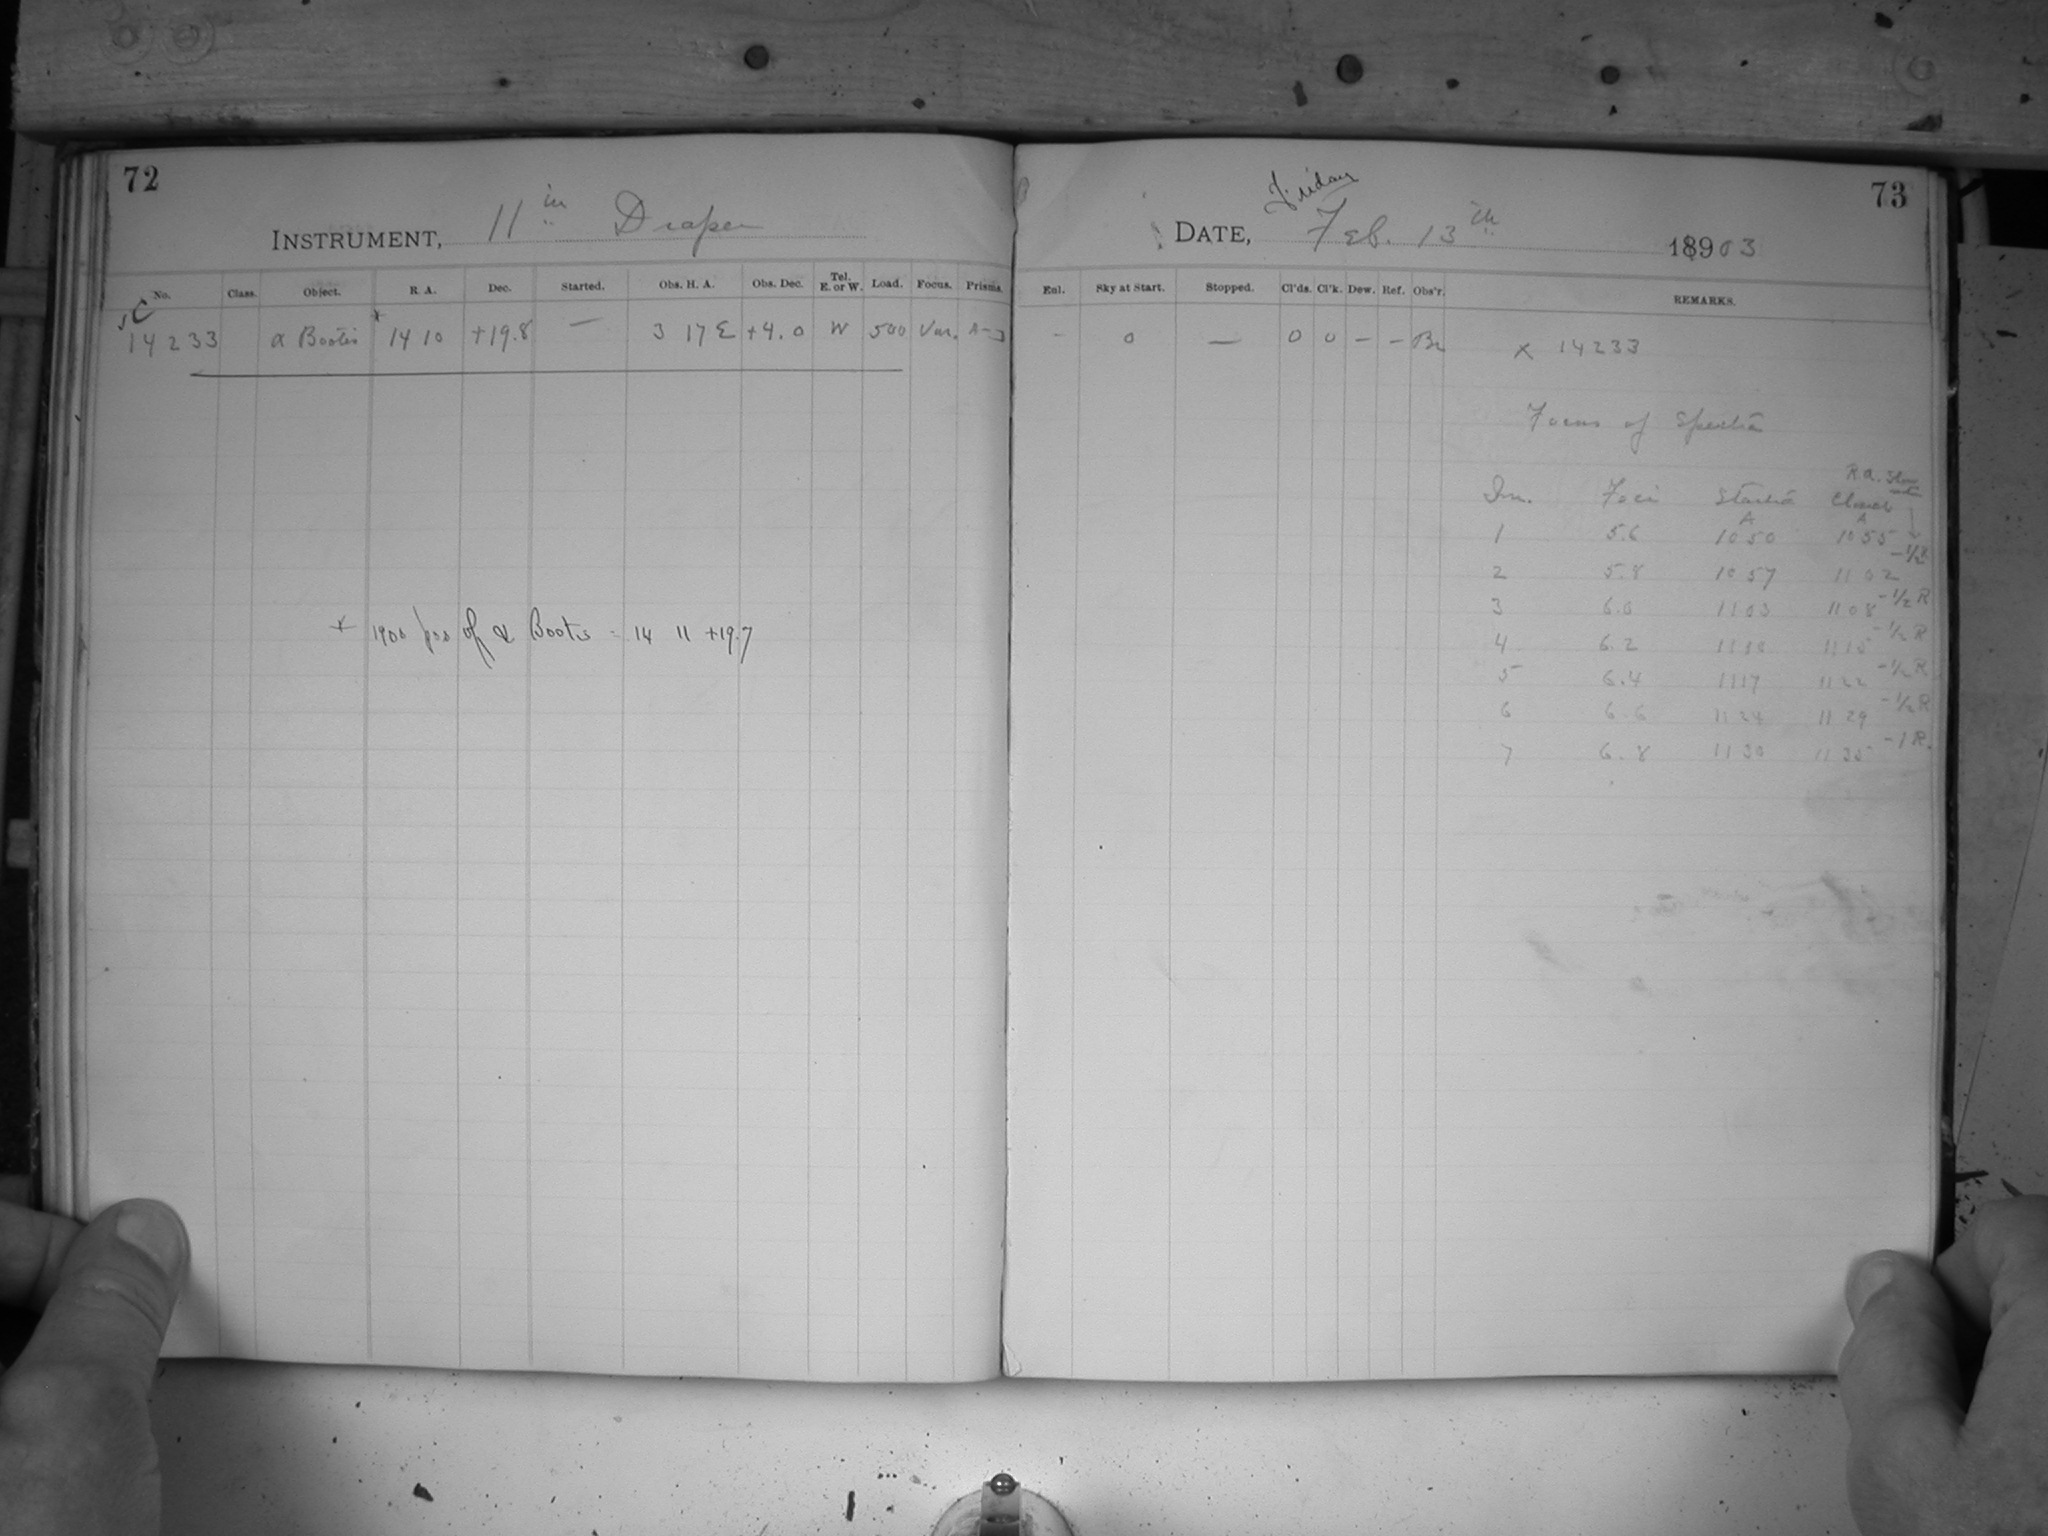 72
INSTRUMENT, 11 in Draper
No. Class. Object. R. A. Dec. Started. Obs. H. A. Obs. Dec. Tel. E. or W. Load. Focus. Prisms.
C
14233 α Bootis * 14 10 +19.8 — 3 17 E +4.0 W 500 Var.
* 1900 pos of α Bootis = 14 11 +19.7
73
Friday
DATE, Feb. 13th 18903
Enl. Sky at Start. Stopped. Cl'ds. Cl'k. Dew. Ref. Obs'r. REMARKS.
- 0 — 0 0 - - Br x 14233
Focus of Spectra
R.A.
Im. Foci Started Closed
1 5.6 10 50 10 55 -1/2 R
2 5.8 10 57 11 02 -1/2 R
3 6.0 11 03 11 08 -1/2 R
4 6.2 11 10 11 15 -1/2 R
5 6.4 11 17 11 22 -1/2 R
6 6.6 11 24 11 29 -1 R.
7 6.8 11 30 11 35